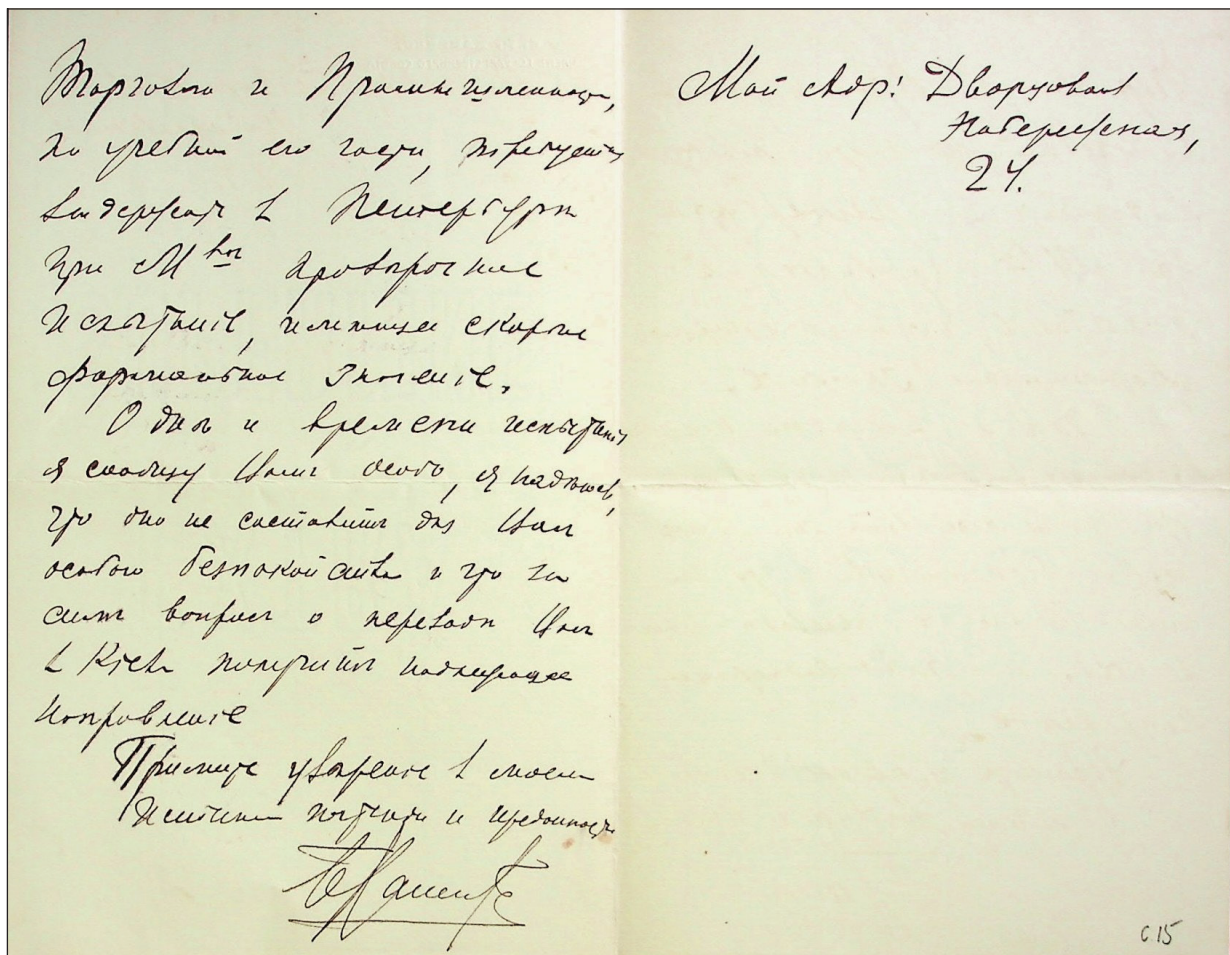 Торговли и Промышленности,
по учебной его части, потребуется
выдержать в Петербурге
при М-ве проверочное
испытание, имеющее скорее
формальное значение.
О дне и времени испытания
я сообщу Вам особо, я надеюсь,
что оно не составит для Вас
особого безпокойства и что за
сим вопрос о переводе Вас
в Киев получит надлежащее
направление
Примите уверение в моем
почтении и преданности
Мой Адр: Дворцовая
Набережная,
24.
с 15